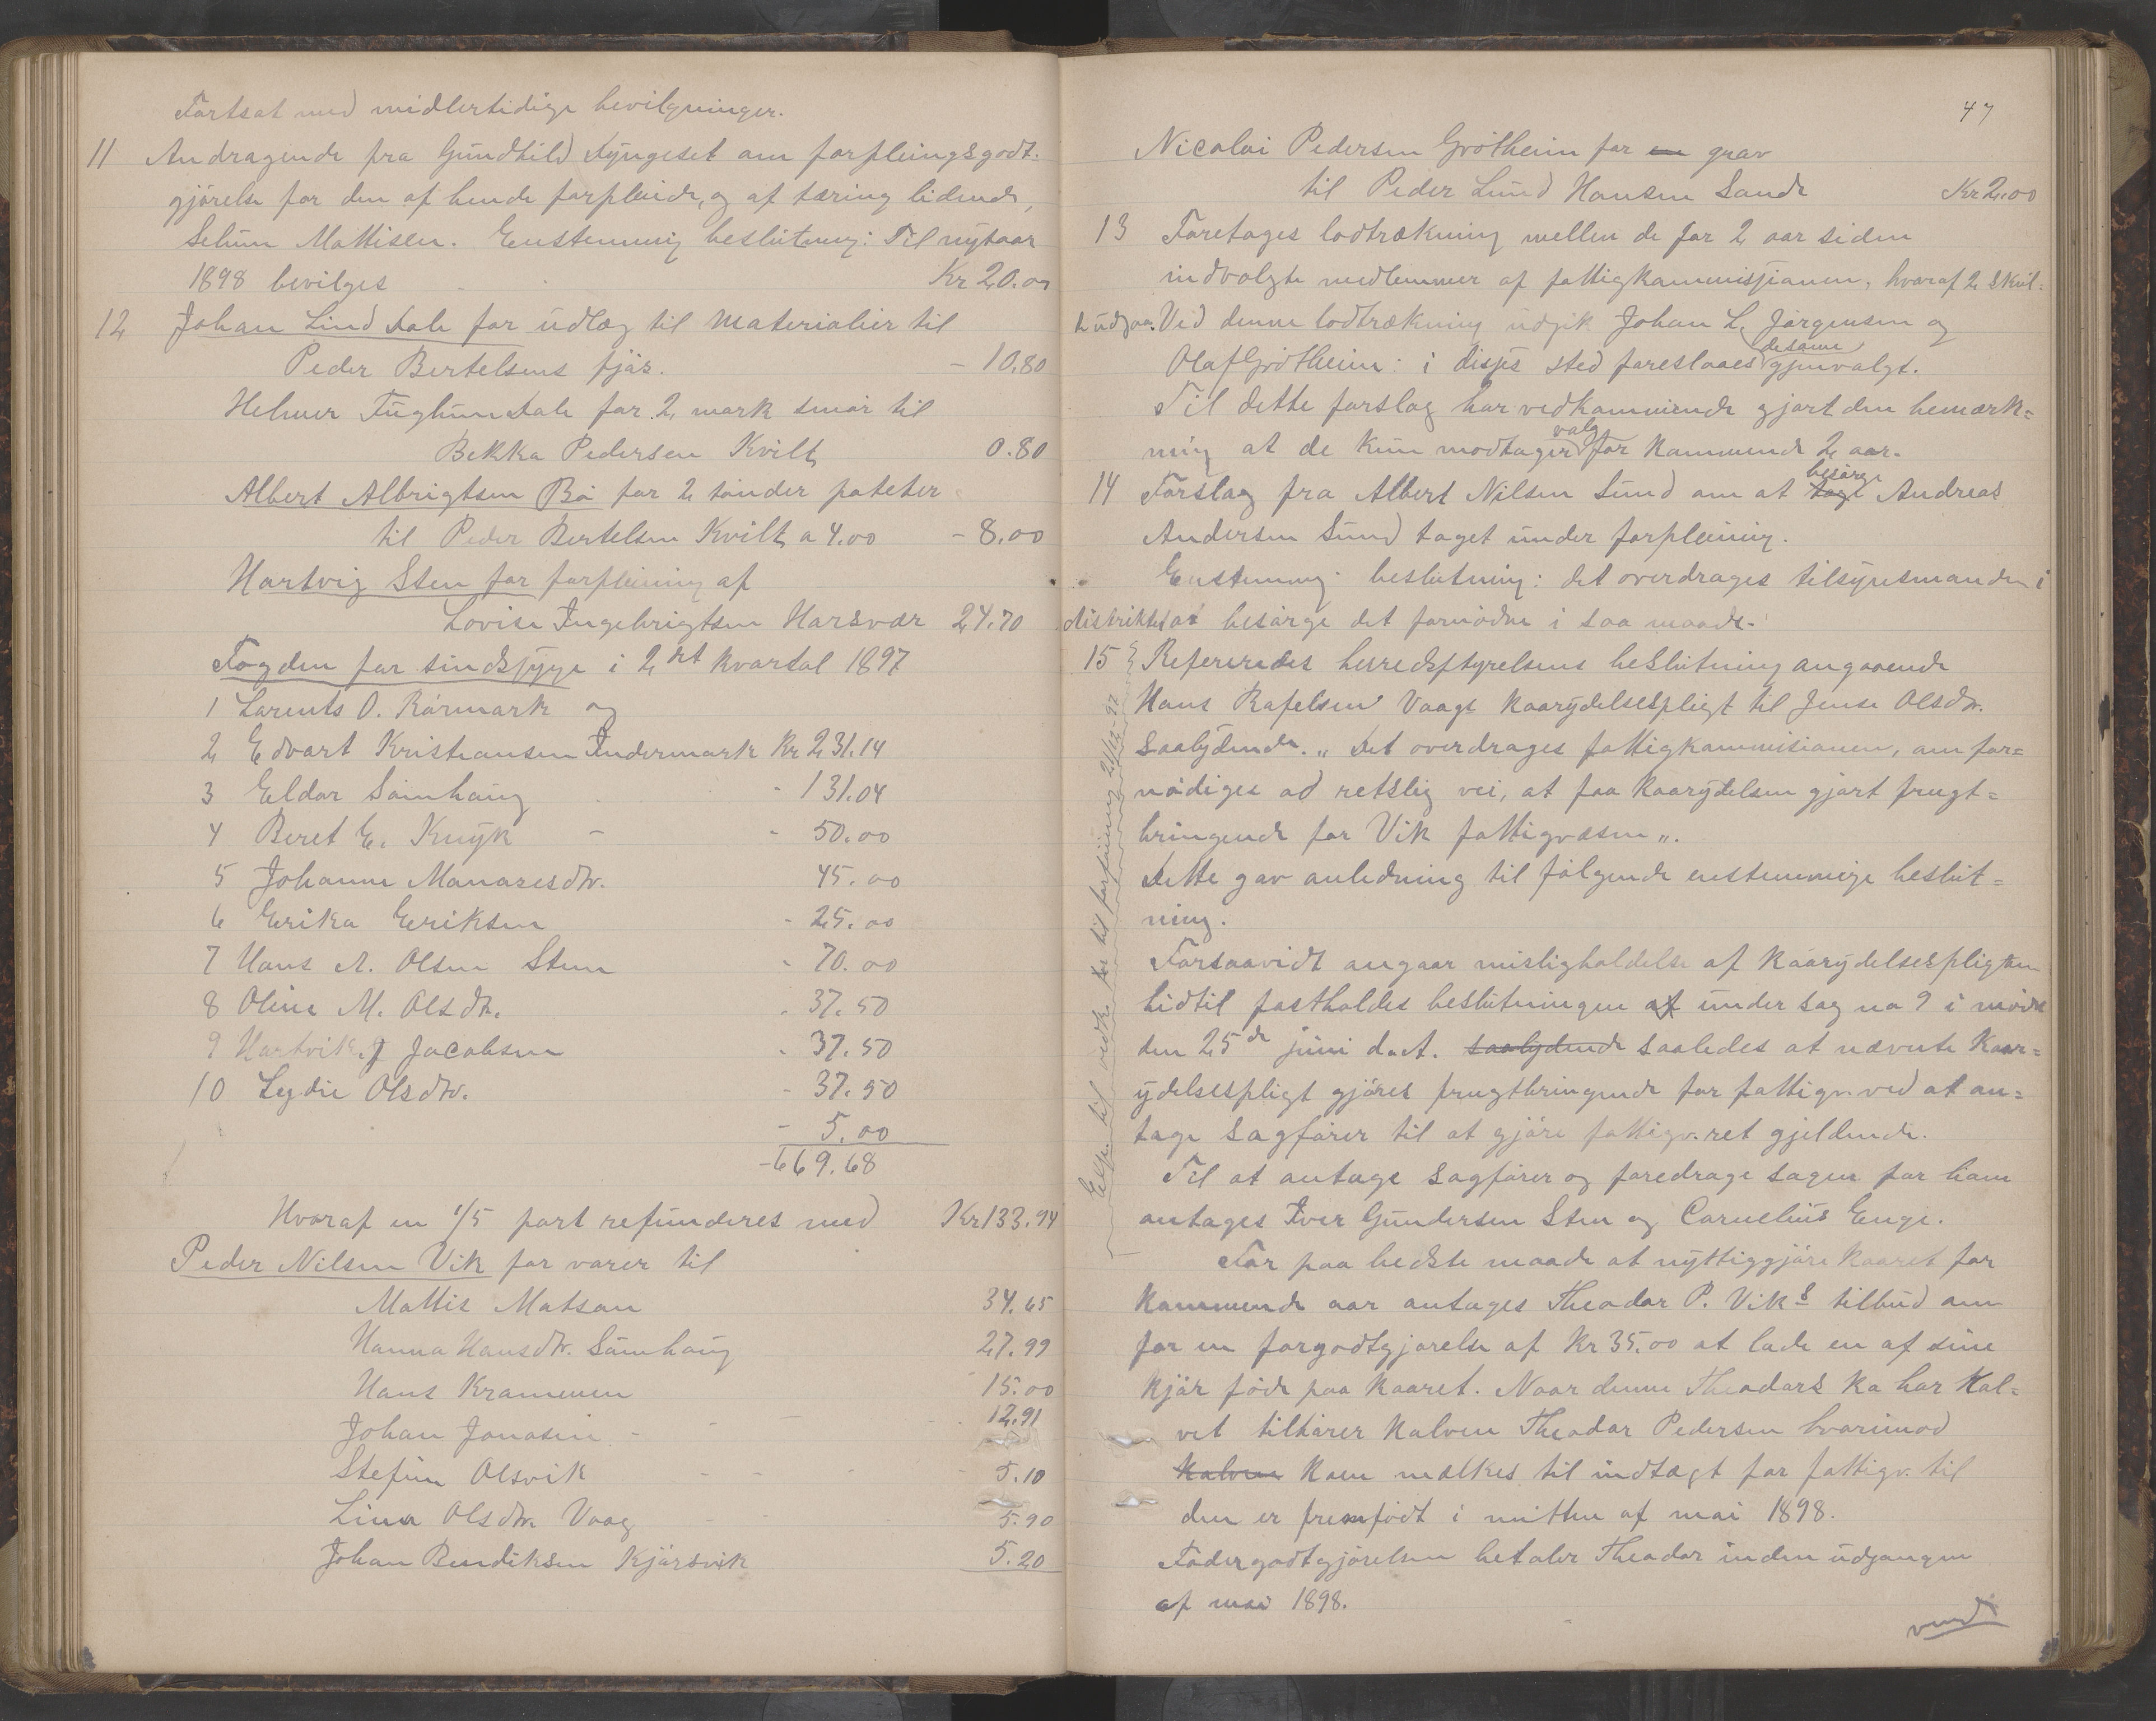 Fortsat med midlertidige bevilgninger.
11 Andragende fra Gundhild Lyngeset om forpleiningsgodt-
gjørelse for den af hende forpleiede, og af tæring lidende,
Selium Mattisen. Enstemmig beslutning: Til nytaar
1898 bevilges Kr 20.00
12 Johan Lind Dale for udlæg til materialier til
Peder Bertelsens fjøs. - 10.80
Helmer Fuglum Dale for 2 mark smør til
Bekka Pedersen Kvilt 0.80
Albert Albrigtsen Bø for 2 tønder poteter
til Peder Bertelsen Kvilt a 4.00 - 8.00
Hartvig Sten for forpleining af
Lovise Ingebrigtsen Harsvær 24.70
Fogden for sindssyge i 2det kvartal 1897
1 Larents O. Rørmark og
2 Edvart Kristiansen Indermark Kr 231.14
3 Eldar Sømhaug - 131.04
4 Beret E. Knyk - - 50.00
5 Johanne Manasesdtr. 45.00
6 Erika Eriksen - 25.00
7 Hans A. Olsen Sten - 70.00
8 Oline M. Olsdtr. - 37.50
9 Hartvik J Jacobsen - 37.50
10 Lydie Olsdtr. - 37.50
- 5.00
- 669.68
Hvoraf en 1/5 part refunderes med Kr 133.94
Peder Nilsen Vik for varer til
Mattis Matson 34.65
Hanna Hansdtr. Sømhaug 27.99
Hans Kramenen 15.00
Johan Jonasen - 12.91
Stefen Olsvik 5.10
Lina Olsdtr. Vaag 5.90
Johan Bendiksen Kjørsvik 5.20
47
Nicolai Pedersen Grøtheim for en grav
til Peder Lund Hansen Sande Kr 2.00
13 Foretages lodtrækning mellem de for 2 aar siden
indvalgte medlemmer af fattigkommissjonen, hvoraf 2 skul-
de udgaa. Ved denne lodtrækning udgik Johan L. Jørgensen og
Olaf Grøtheim: i disses sted foreslaaes desamme gjenvalgt.
Til dette forslag har vedkommende gjort den bemærk-
ning at de kun modtager valg for kommende 2 aar.
14 Forslag fra Albert Nilsen Sund om at tage besørge Andreas
Andersen Sund taget under forpleining.
Enstemmig beslutning: det overdrages tilsynsmanden i
distriktet at besørge det fornødne i saa maade.
15 Refereredes herredsstyrelsens beslutning angaaende
Hans Rafelsen Vaags kaarydelsespligt til Jense Olsdtr.
saalydende. "Det overdrages fattigkommisionen, om for-
nødiges ad retslig vei, at faa kaarydelsen gjort frugt-
bringende for Vik fattigvæsen".
Dette gav anledning til følgende enstemmige beslut-
ning.
Forsaavidt angaar misligholdelse af kaarydelsespligten
hidtil fastholdes beslutningen af under sag no 9 i møde
den 25de juni d.A. saalydende saaledes at nævnte kaar-
ydelsespligt gjøres frugtbringende for fattigv. ved at an-
tage sagfører til at gjøre fattigv. ret gjeldende.
Til at antage sagfører og foredrage sagen for ham
antages Iver Gundersen Sten og Cornelius Enge.
For paa bedste maade at nyttiggjøre kaaret for
kommende aar antages Theodor P. Viks tilbud om
for en forgodtgjørelse af Kr 35.00 at lade en af sine
kjør føde paa kaaret. Naar denne Theodors ko har kal-
vet tilhører kalven Theodor Pedersen hvorimod
kalven koen melkes til indtægt for fattigv. til
den er fremfødt i mitten af mai 1898.
Fodergodtgjørelsen betaler Theodor inden udgangen
af mai 1898.
vend